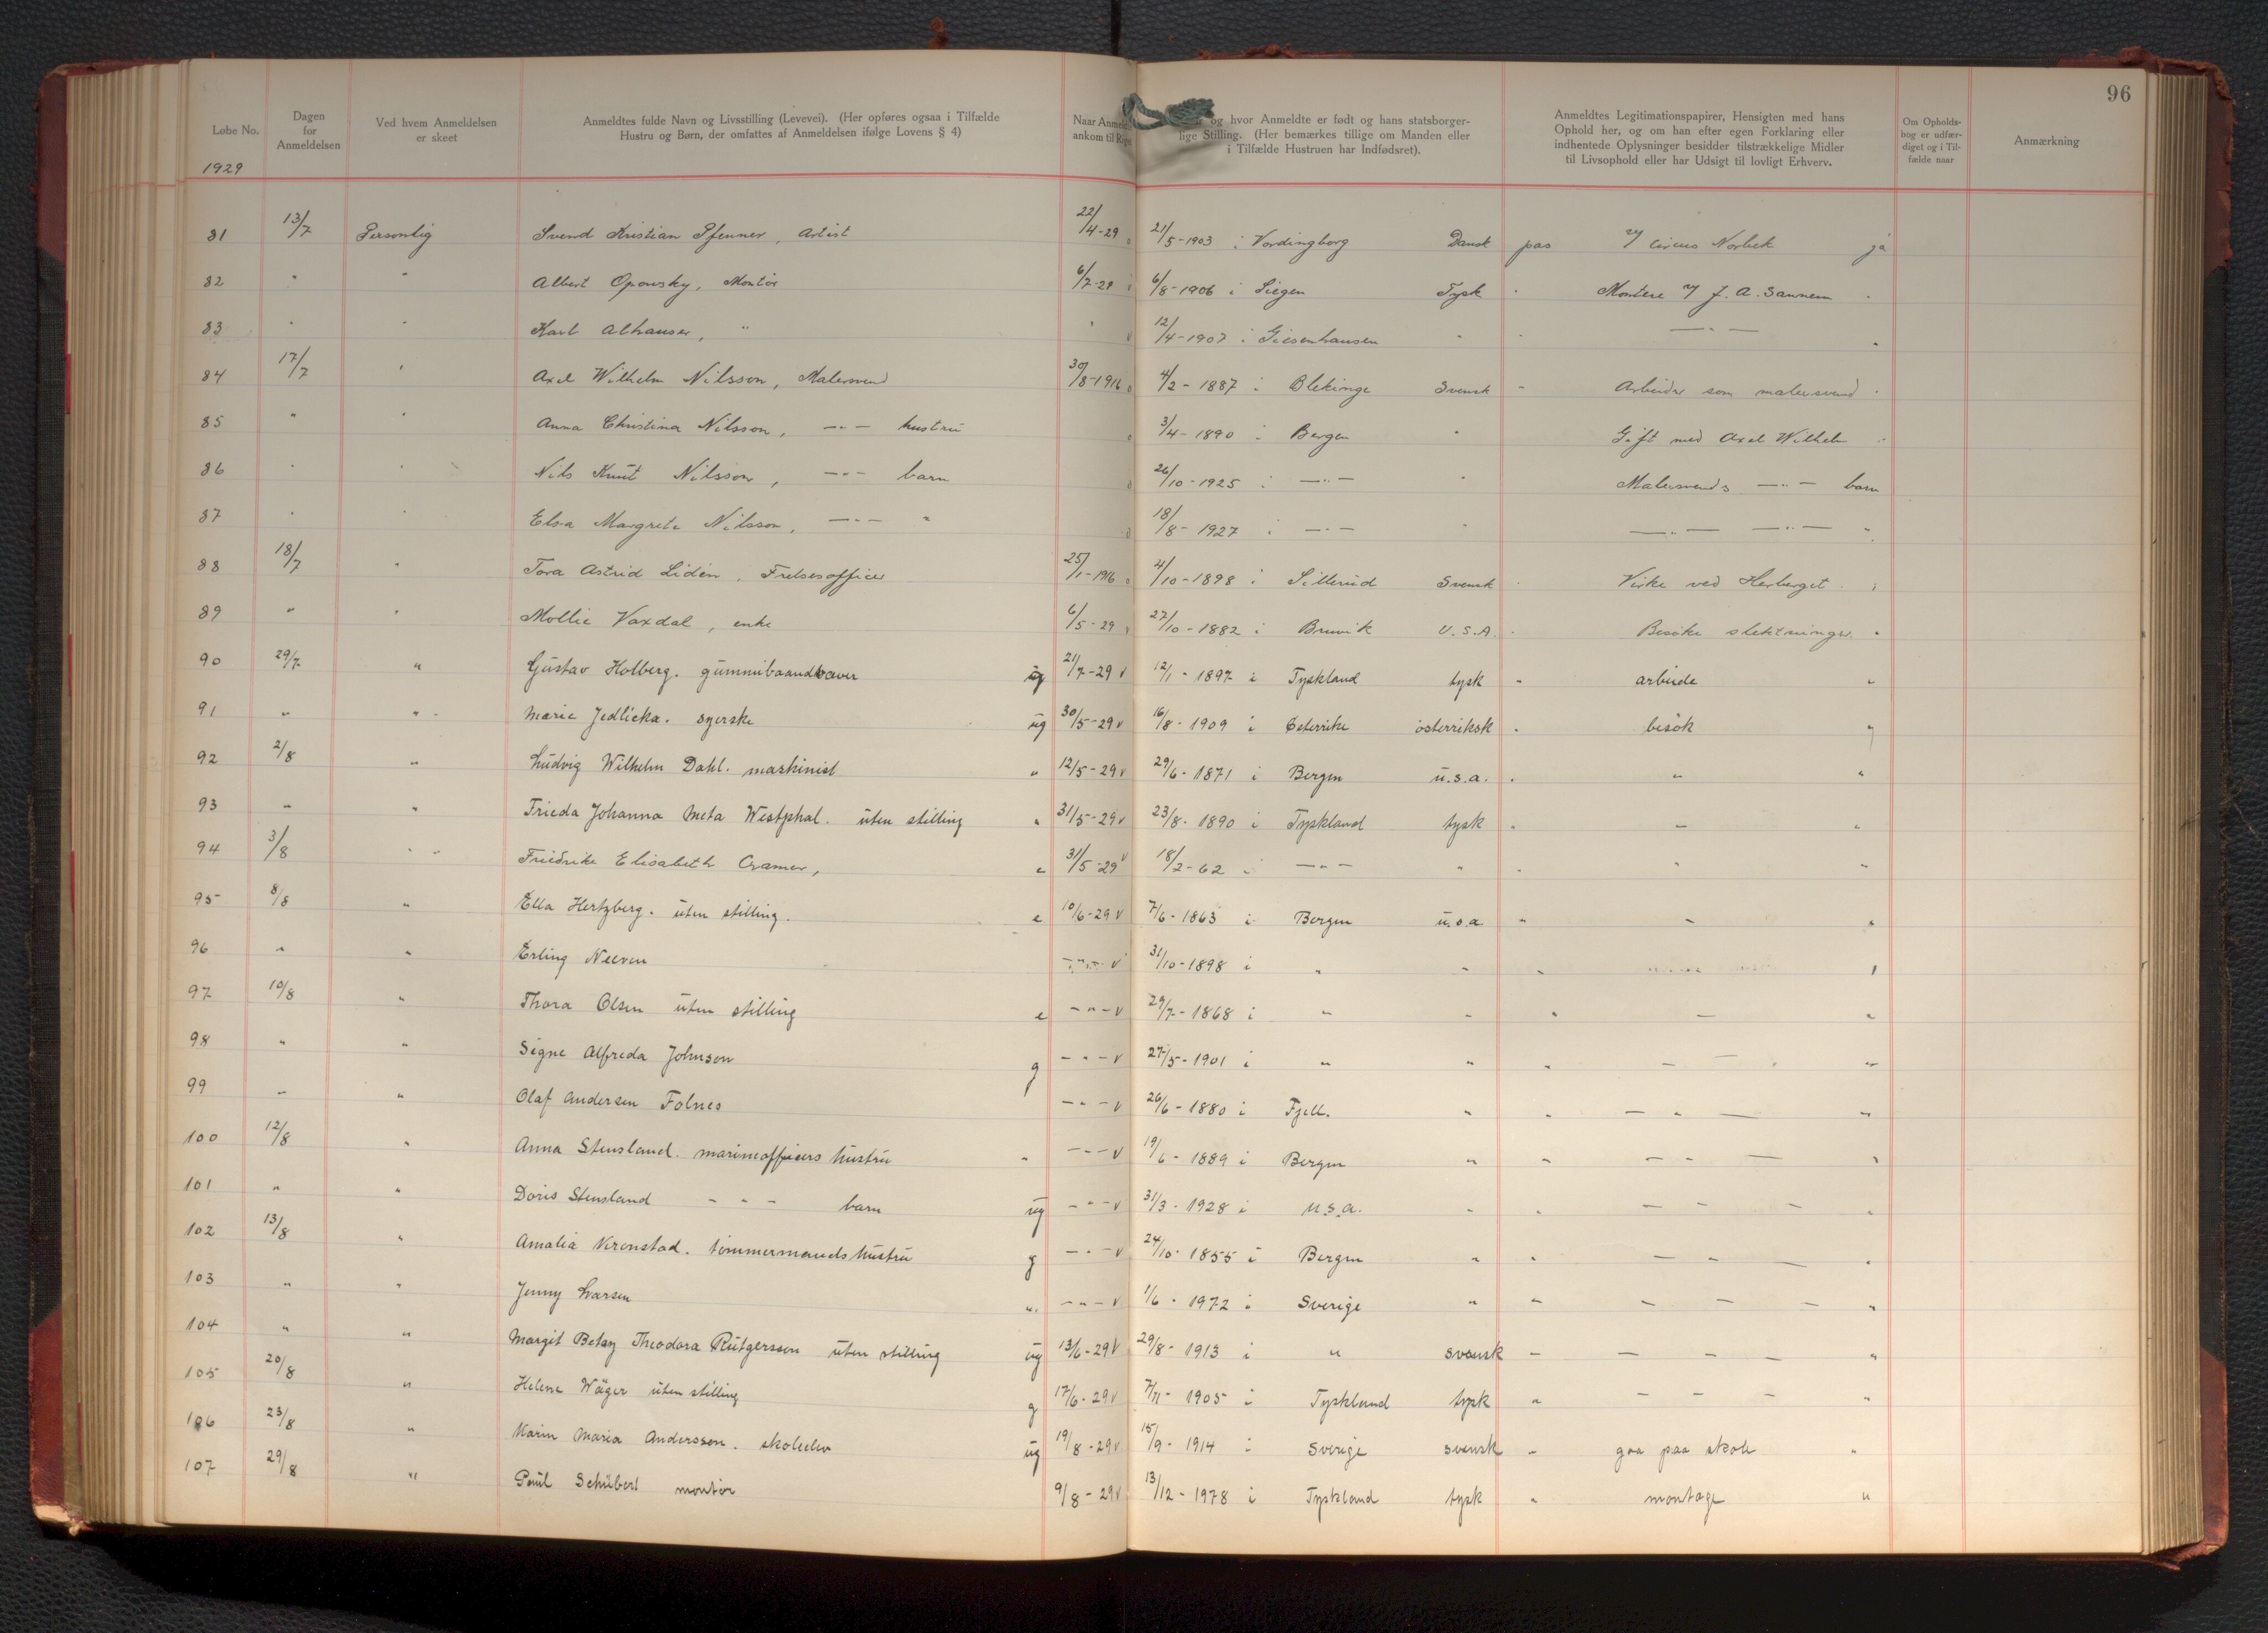 96
Løbe No.
Dagen for Anmeldelsen
Ved hvem Anmeldelsen er skeet
Anmeldtes fulde Navn og Livsstilling (Levevei). (Her opføres ogsaa i Tilfælde Hustru og Børn, der omfattes af Anmeldelsen ifølge Lovens § 4)
Naar Anmeldte ankom til Riget
og hvor Anmeldte er født og hans statsborgerlige Stilling. (Her bemærkes tillige om Manden eller i Tilfælde Hustruen har Indfødsret).
Anmeldtes Legitimationspapirer, Hensigten med hans Ophold her, og om han efter egen Forklaring eller indhentede Oplysninger besidder tilstrækkelige Midler til Livsophold eller har Udsigt til lovligt Erhverv.
Om Opholdsbog er udfærdiget og i Tilfælde naar
Anmærkning
1929
81 13/7 Personlig Svend Kristian Pfenner, Artist 22/4-29 21/5-1903 i Vordingborg Dansk pas v/ Circus Norbek ja
82 " " Albert Opowsky, Montør 6/7-29 6/8-1906 i Siegen Tysk " Montere v/ J. A. Sannem "
83 " " Karl Alhauser, " " v 12/4-1907 i Giesenhausen " " —"— "
84 17/7 " Axel Wilhelm Nilsson, Malersvend 30/8-1916 4/2-1887 i Blekinge Svensk " Arbeider som malersvend "
85 " " Anna Christina Nilsson, —"— hustru 3/4-1890 i Bergen " Gift med Axel Wilhelm "
86 " " Nils Knut Nilsson, —"— barn 26/10-1925 i —"— " Malersvends —"— barn
87 " " Elsa Margrete Nilsson, —"— " 18/8-1927 i —"— " —"— —"— "
88 18/7 " Tora Astrid Lidén, Frelsesofficer 25/1-1916 4/10-1898 i Sillerud Svensk " Virke ved Herberget "
89 " " Mollie Vaxdal, enke 6/5-29 27/10-1882 i Bruvik U.S.A. " Besøke slektninger. "
90 29/7 " Gustav Holberg. gummibaandvæver ug 21/7-29 v 12/1-1897 i Tyskland tysk " arbeide "
91 " " Marie Jedlicka. syerske ug 30/5-29 v 16/8-1909 i Østerrike østerriksk " besøk "
92 2/8 " Ludvig Wilhelm Dahl. maskinist " 12/5-29 v 29/6-1871 i Bergen u.s.a. " " "
93 " " Frieda Johanna Meta Westphal. uten stilling " 31/5-29 v 23/8-1890 i Tyskland tysk " " "
94 3/8 " Friedrike Elisabeth Cramer, e 31/5-29 v 18/2-62 i —"— " " " "
95 8/8 " Ella Hertzberg. uten stilling. e 10/6-29 v 7/6-1863 i Bergen u.s.a " " "
96 " " Erling Neeven —"— v 31/10-1898 i " " " "
97 10/8 " Thora Olsen uten stilling e —"— v 29/7-1868 i " " " — "
98 " " Signe Alfreda Johnson g —"— v 27/5-1901 i " " " — — "
99 " " Olaf Andersen Folnes —"— v 26/6-1880 i Fjell. " " — " — "
100 12/8 " Anna Stensland. marineofficers hustru " —"— v 19/6-1889 i Bergen " " — " — "
101 " " Doris Stensland —"— barn ug —"— v 31/3-1928 i U.S.A. " " — " — "
102 13/8 " Amalia Kronstad. tømmermands hustru g —"— v 24/10-1855 i Bergen " " — " — "
103 " " Jenny Larsen " —"— v 1/6-1972 i Sverige " " — — — "
104 " " Margit Betzy Theodora Rutgersson uten stilling ug 13/6-29 v 29/8-1913 i " svensk — — — — "
105 20/8 " Helene Wäger uten stilling g 17/6-29 v 7/11-1905 i Tyskland tysk " — — — "
106 23/8 " Karin Maria Andersson. skoleelev ug 19/8-29 v 15/9-1914 i Sverige svensk " gaa paa skole "
107 29/8 " Paul Schübert montør 9/8-29 v 13/12-1978 i Tyskland tysk " montage "